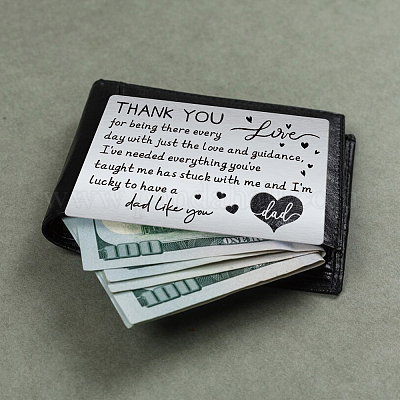 THANK YOU
for being there every Love
day with just the love and guidance,
I've needed everything you've
taught me has stuck with me and I'm
lucky to have a
dad like you dad
100 ONE
100